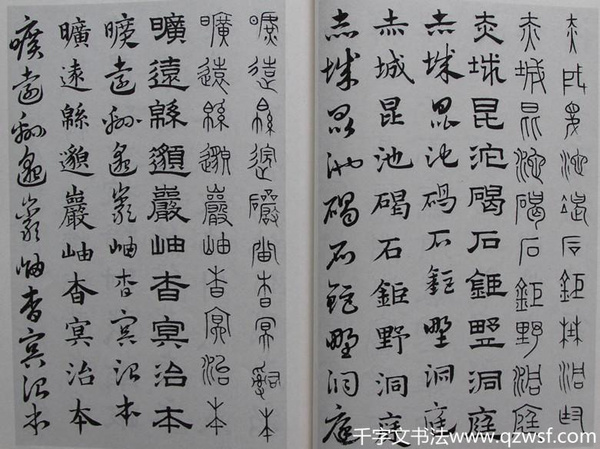 赤城昆池碣石鉅野洞庭
赤城昆池碣石鉅野洞庭
赤城昆池碣石鉅野洞庭
赤城昆池碣石鉅野洞庭
赤城昆池碣石鉅野洞庭
赤城昆池碣石鉅野洞庭
曠遠緜邈巖岫杳冥治本
曠遠緜邈巖岫杳冥治本
曠遠緜邈巖岫杳冥治本
曠遠緜邈巖岫杳冥治本
曠遠緜邈巖岫杳冥治本
曠遠緜邈巖岫杳冥治本
千字文书法www.qzwsf.com